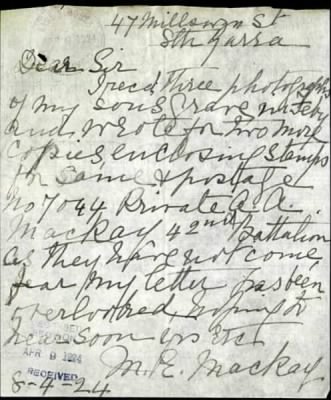 47 Millswyn St
Sth Yarra
Dear Sir
I recd three photographs
of my sons Grave
and wrote for two more
copies enclosing stamps
for same & postage
No 7044 Private A.A.
Mackay 42nd Battalion
as they have not come
fear my letter has been
overlooked, hoping to
hear soon yrs Etc
M. E. Mackay
8-4-24
APR 9 1924
RECEIVED